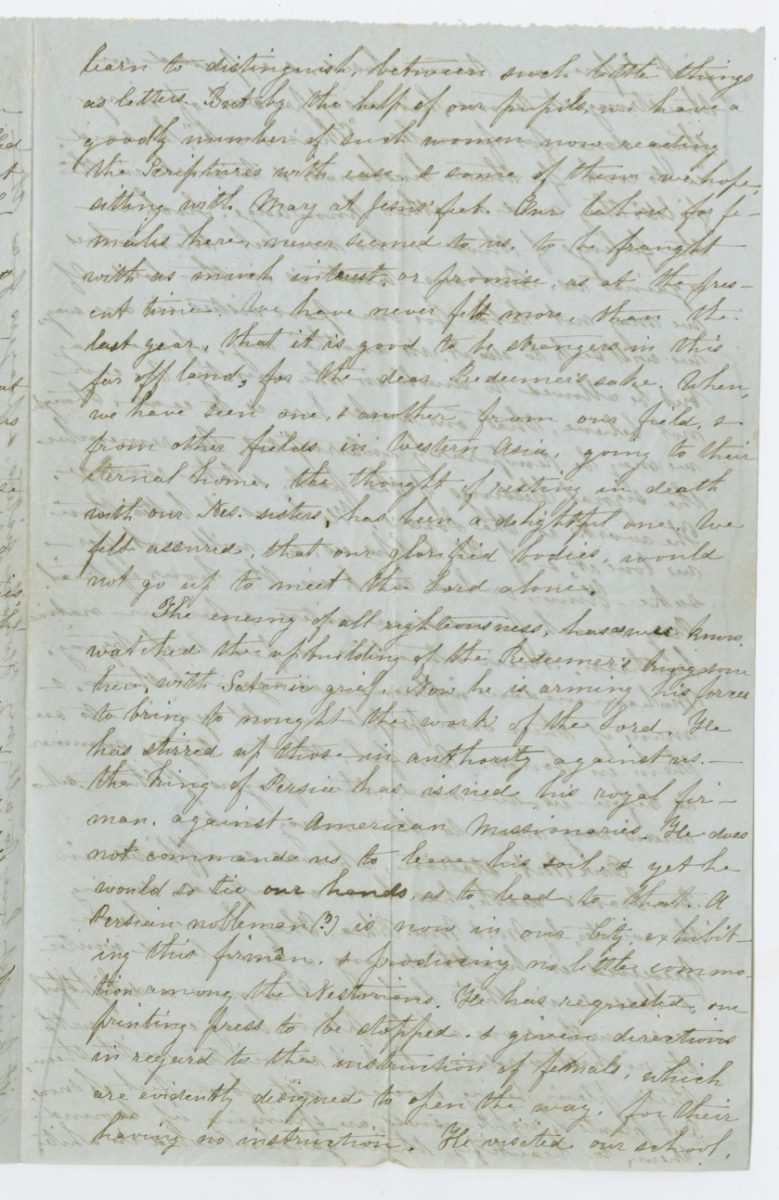 learn to distinguish, between such little things
as letters. But by the help of our pupils, we have a
goodly number of such women now reading
the Scriptures with ease. & some of them we hope,
sitting with Mary at Jesus' feet. Our labors for fe-
males here, never seemed to us, to be fraught
with as much interest, or promise, as at the pres-
ent time. We have never felt more, than the
last year, that it is good to be strangers in this
far off land, for the dear Redeemer's sake. When,
we have seen one, & another from our field, &
from other fields in Western Asia, going to their
eternal home, the thought of resting in death
with our Nes. sisters, has been a delightful one. We
felt assured, that our glorified bodies, would
not go up to meet the Lord alone.
The enemy of all righteousness, has we know,
watched the upbuilding of the Redeemer's kingdom
here, with Satanic grief. Now he is arming his forces
to bring to nought the work of the Lord. He
has stirred up those in authority against us. —
the King of Persia has issued his royal fir-
man, against American Missionaries. He does
not command us to leave his soil, & yet he
would so tie our hands, as to lead to that. A
Persian nobleman (?) is now in our city exhibit-
ing this firman. & producing no little commo-
tion among the Nestorians. He has requested, our
printing press to be stopped. & given directions
in regard to the instruction of females, which
are evidently designed to open the way, for their
having no instruction. He visited our school,